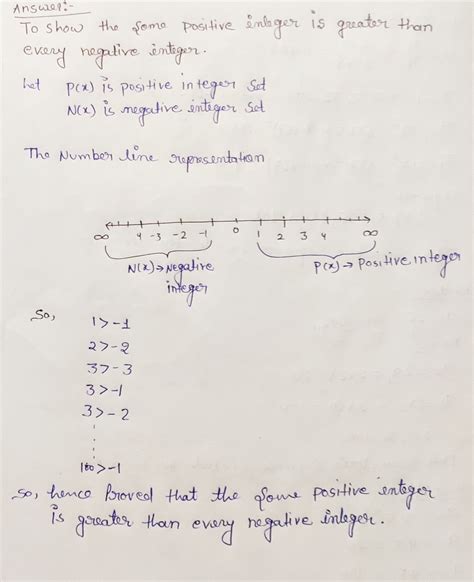 Answer:-
To show the some positive integer is greater than
every negative integer.
Let P(x) is positive integer Set
N(x) is negative integer Set
The Number line representation
∞ 4 -3 -2 -1 0 1 2 3 4 ∞
N(x)→Negative
integer
P(x)→Positive integer
So,
1>-1
2>-2
3>-3
3>-1
3>-2
100>-1
So, hence Proved that the some positive integer
is greater than every negative integer.